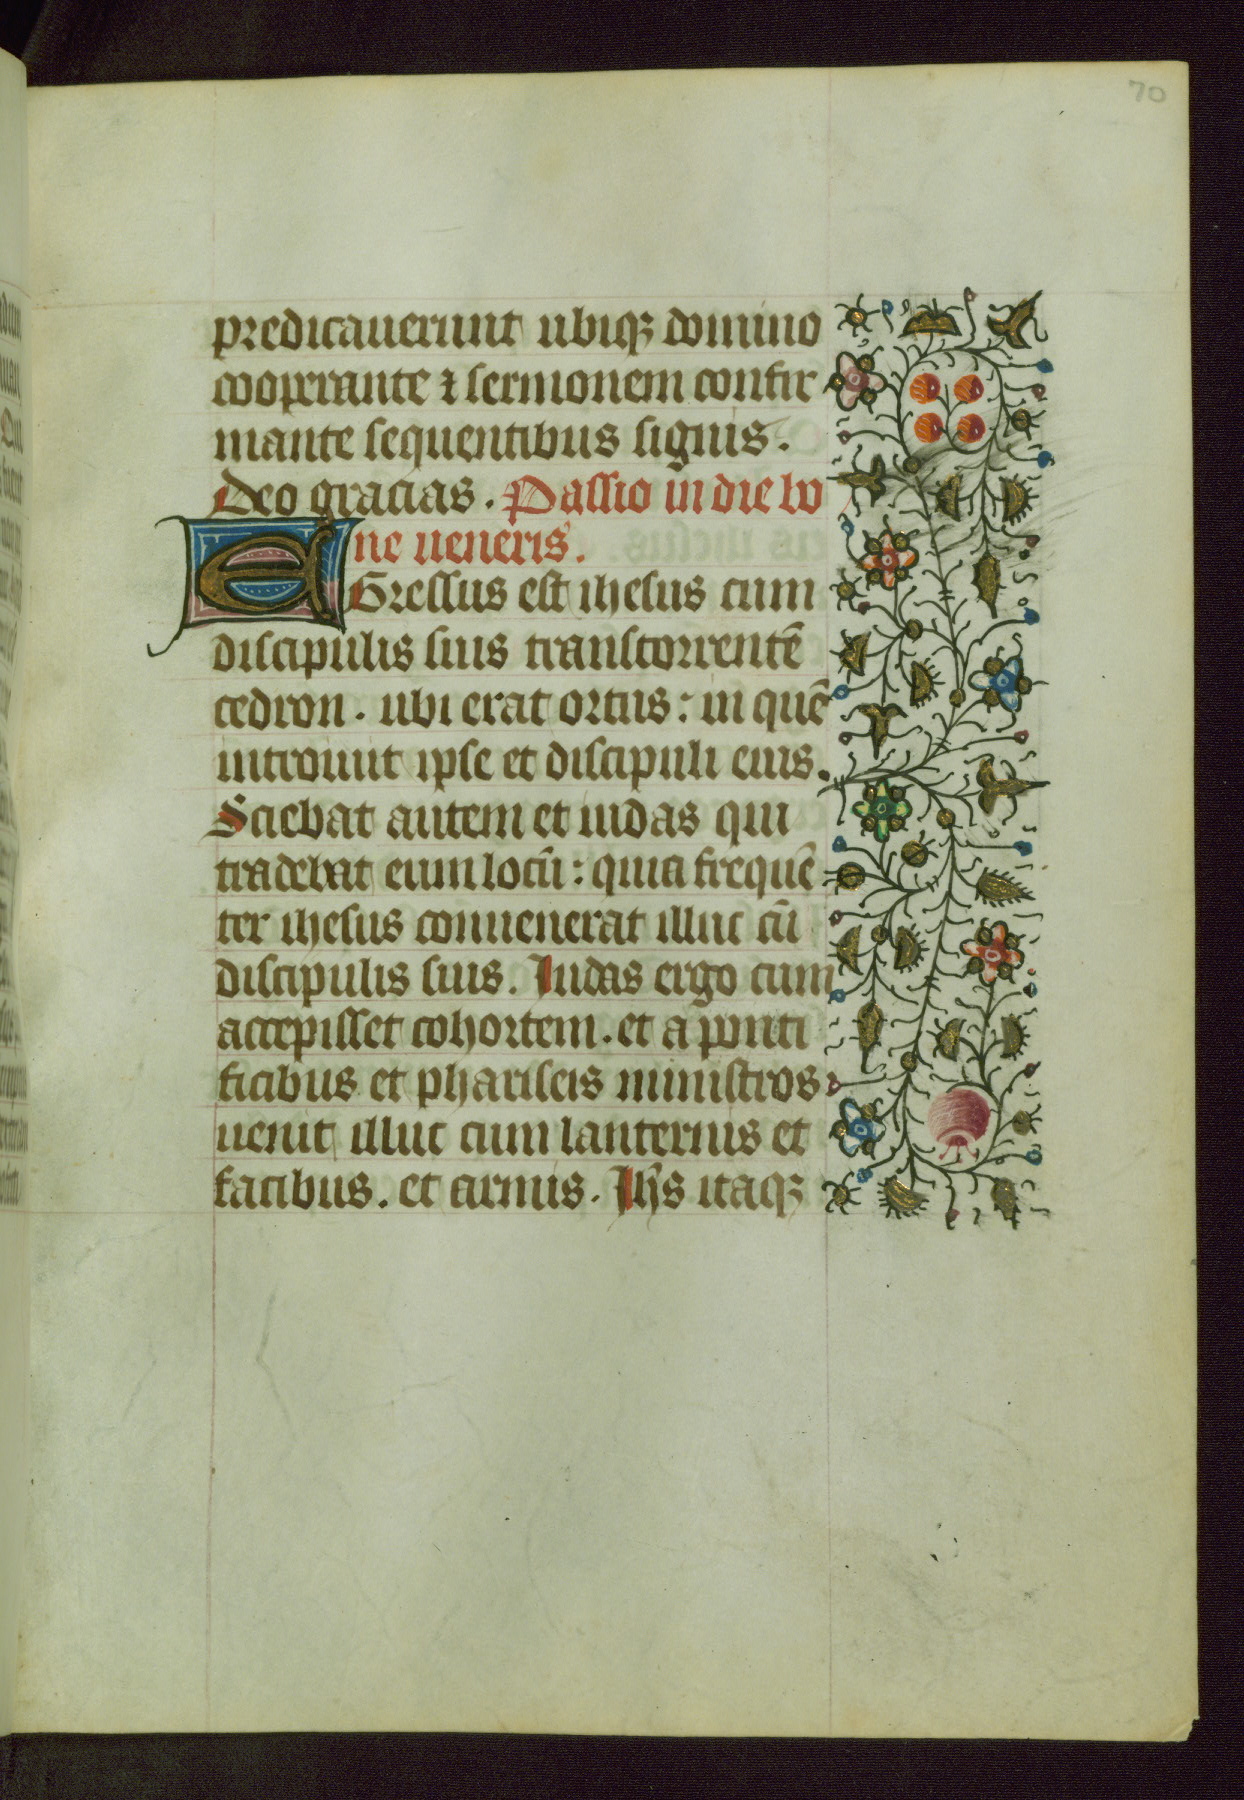 70
predicauerunt ubiqꝫ domino
cooperante ⁊ sermonem confir
mante sequentibus signis.
Deo gracias. Passio in die bo
ne ueneris.
EGressus est ihesus cum
discipulis suis transtorrentē
cedron. ubi erat ortus: in quē
introiuit ipse et discipuli eius.
Sciebat autem et iudas qui
tradebat eum locū: quia frequē
ter ihesus conuenerat illuc cū
discipulis suis. Iudas ergo cum
accepisset cohortem. et a ponti
ficibus et phariseis ministros
uenit illuc cum lanternis et
facibus. et armis. Ihs̄ itaqꝫ